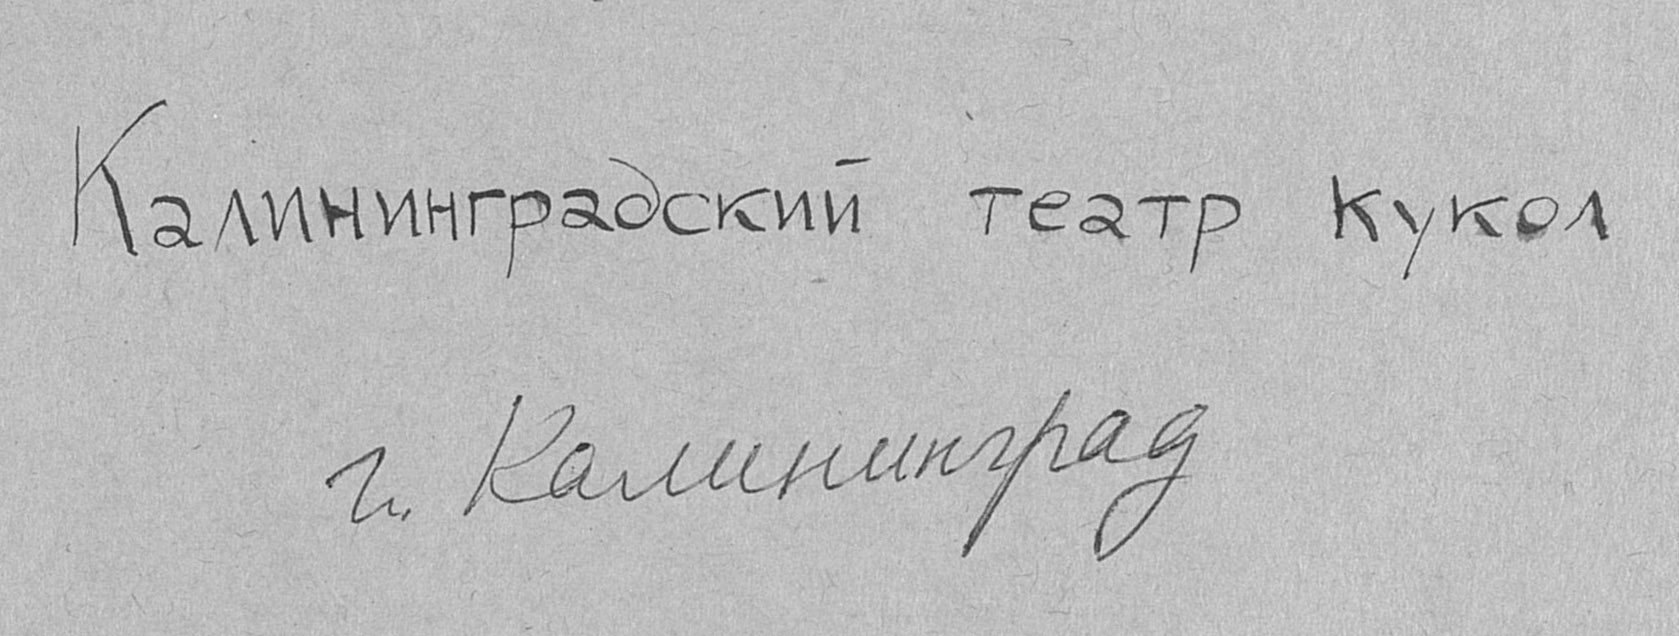 Калининградский театр кукол
г. Калининград